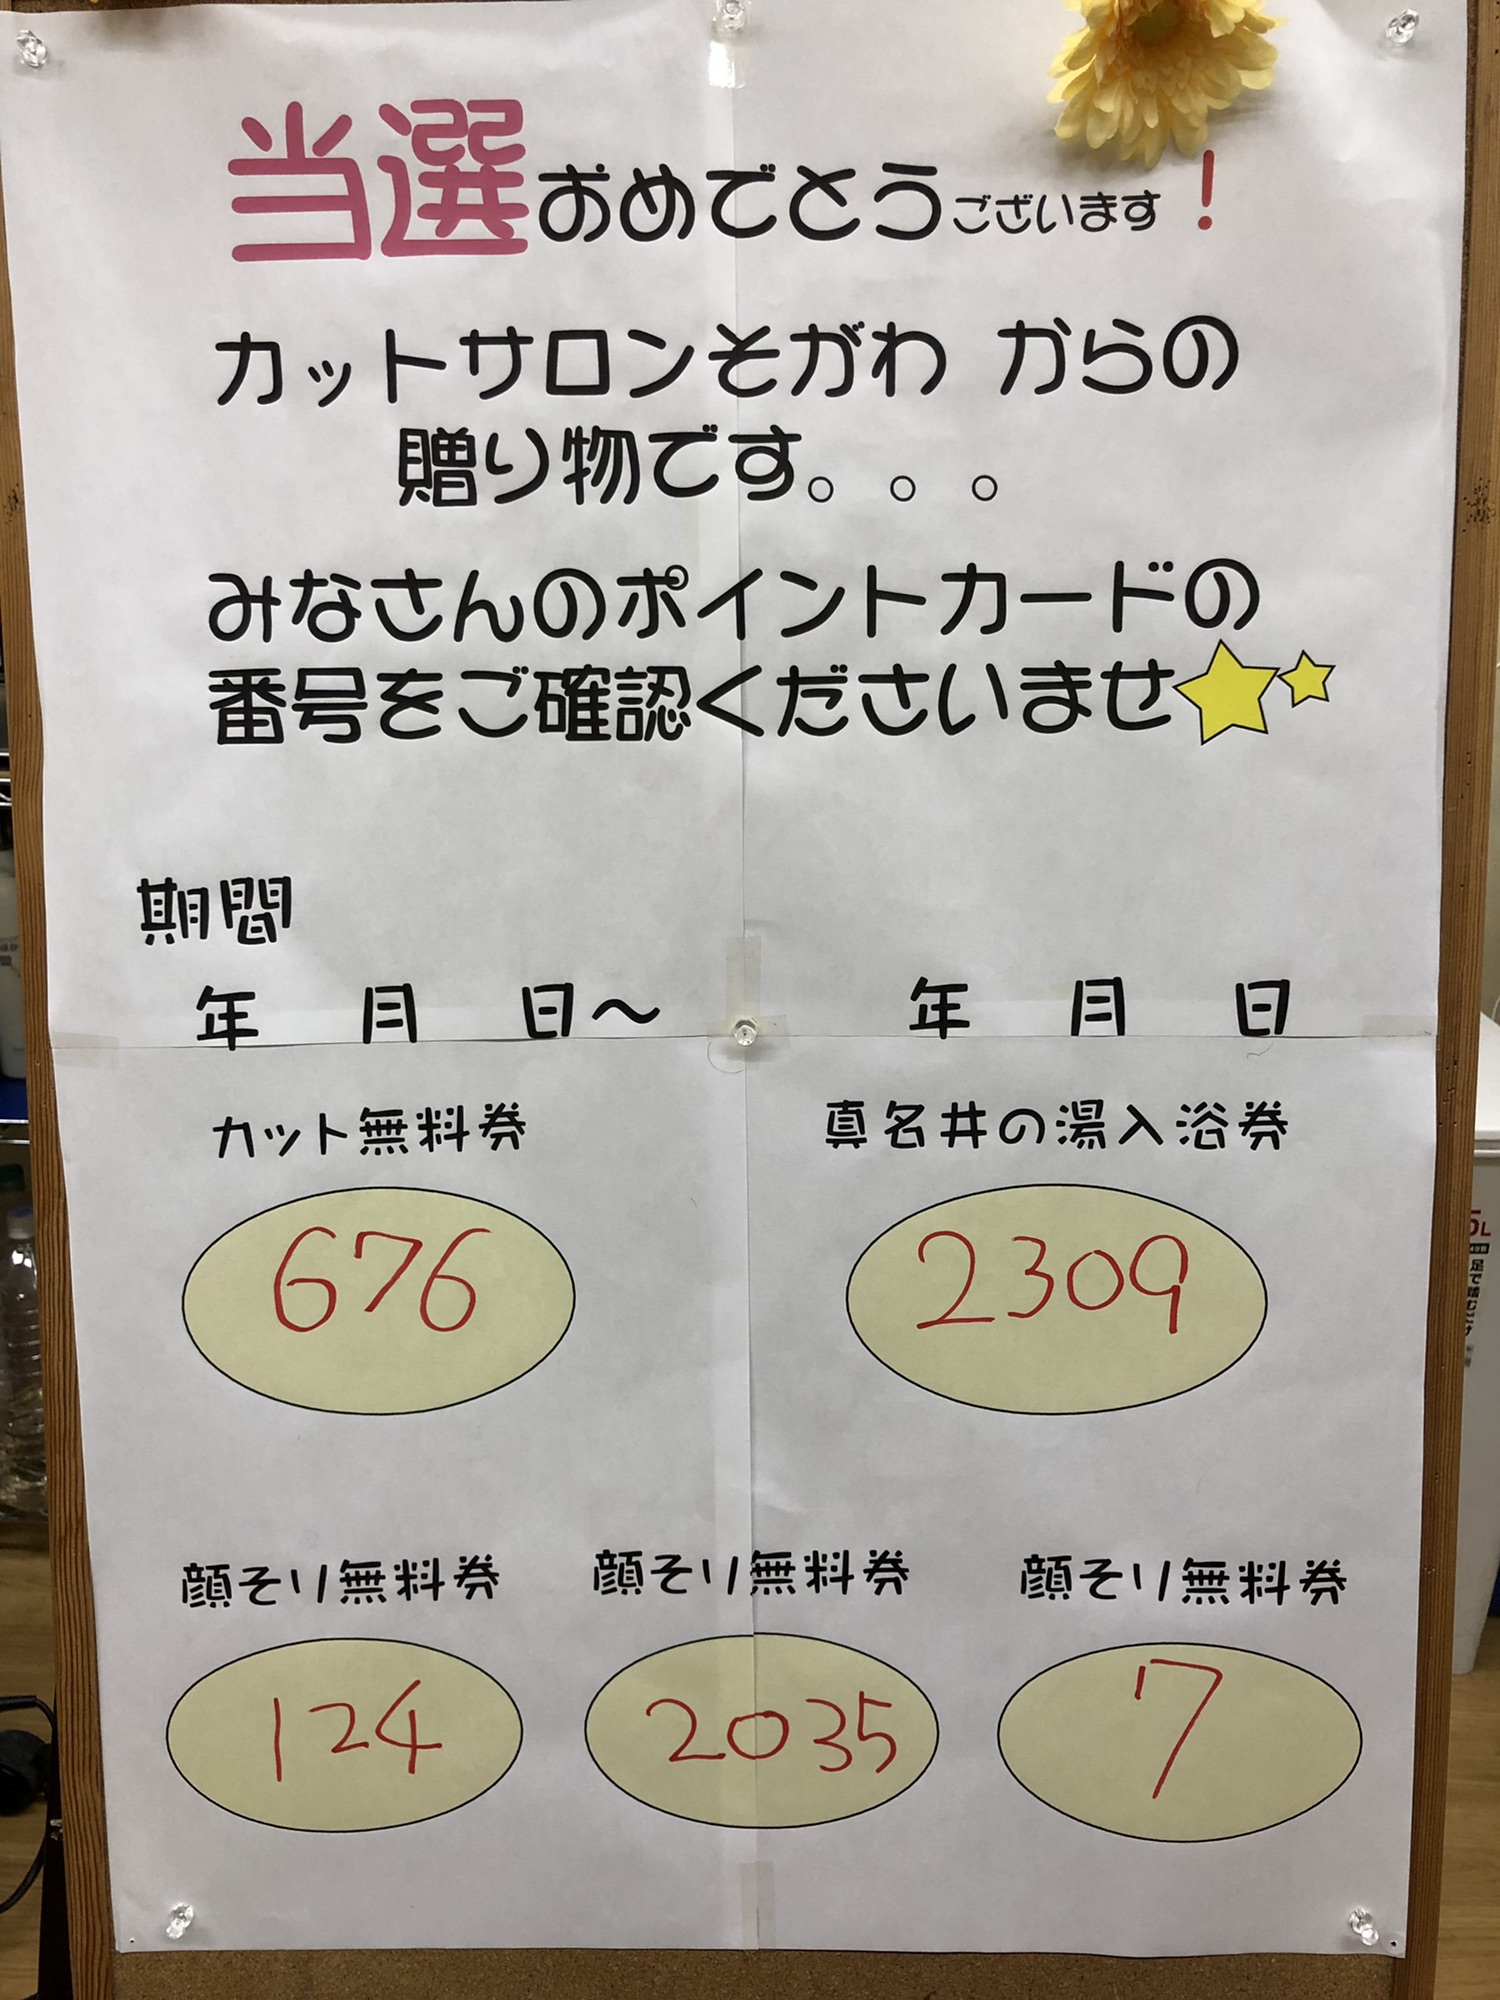 当選おめでとうございます！
カットサロンそがわ からの
贈り物です。。。
みなさんのポイントカードの
番号をご確認くださいませ
期間
年 月 日～ 年 月 日
カット無料券 真名井の湯入浴券
676 2309
顔そり無料券 顔そり無料券 顔そり無料券
124 2035 7
5L
足で踏むだけ